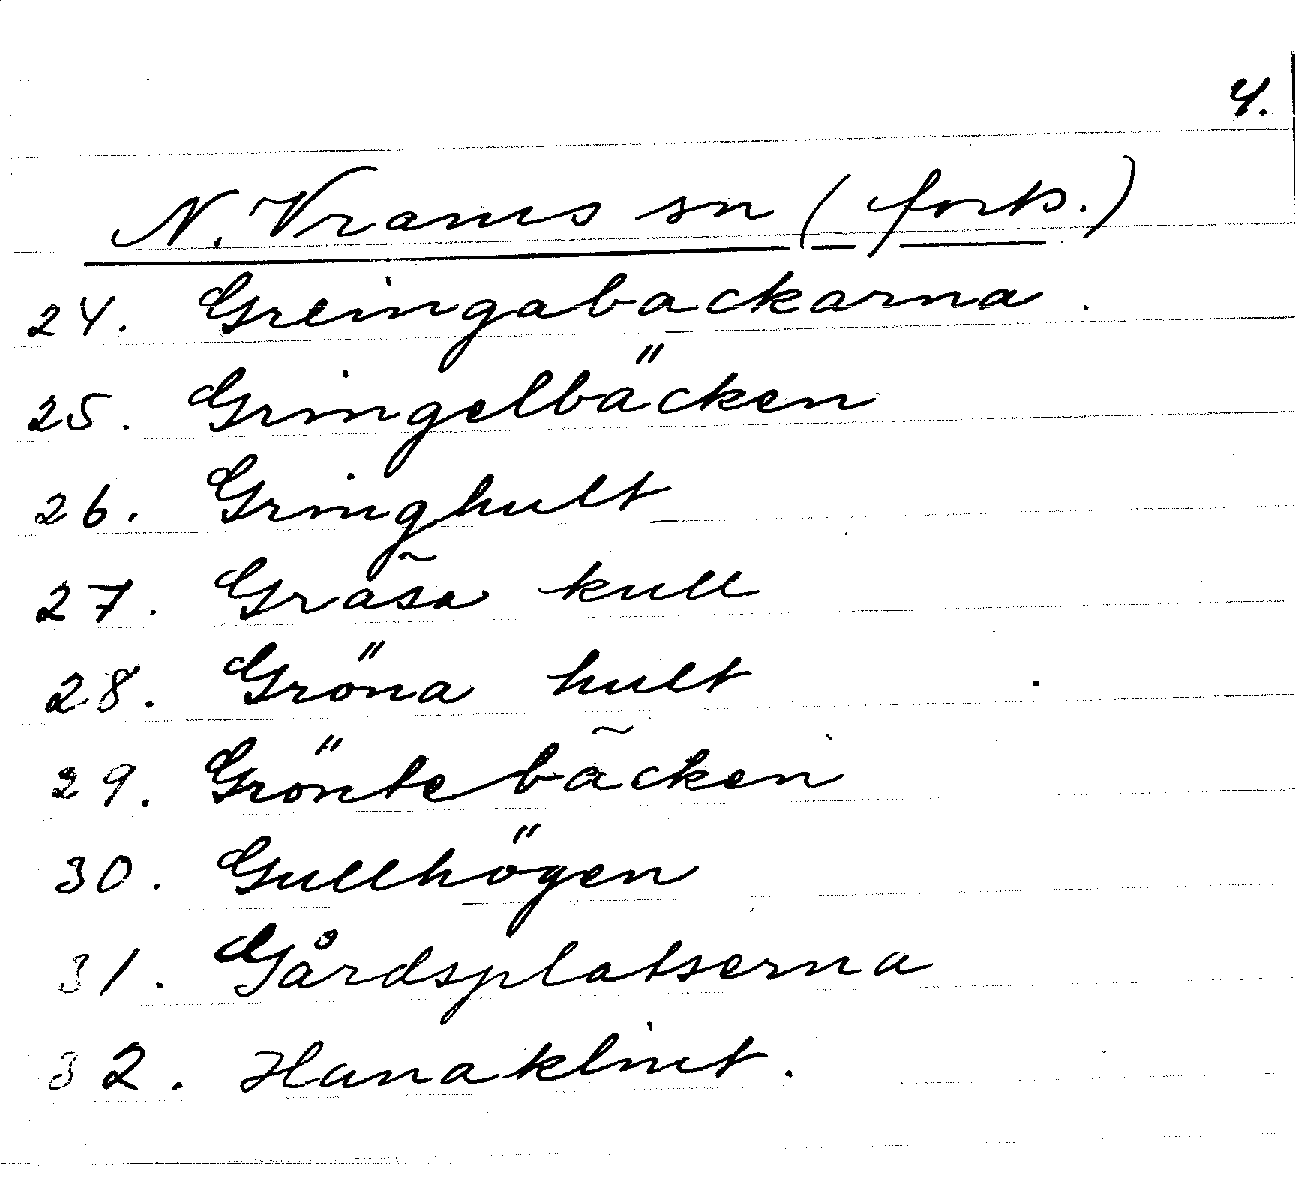 4.
N. Vrams sn (forts.)
24. Greingabackarna.
25. Gringelbäcken
26. Gringhult
27. Gräsa kull
28. Gröna hult
29. Gröntebäcken
30. Gullhögen
31. Gårdsplatserna
32. Hanaklint.